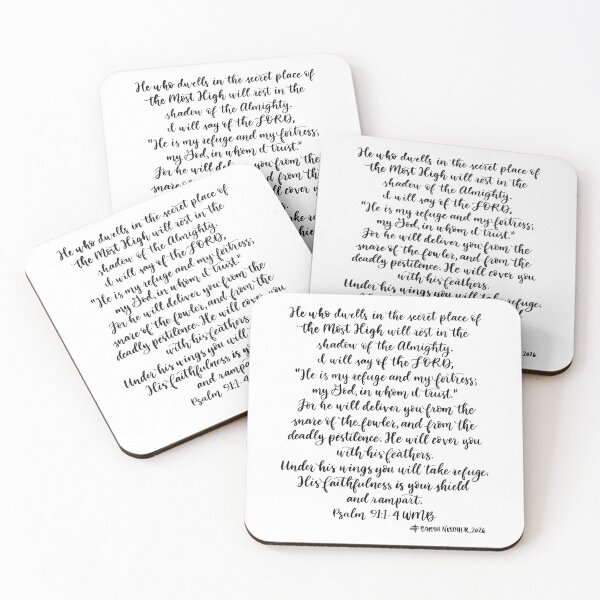 He who dwells in the secret place of
the Most High will rest in the
shadow of the Almighty.
I will say of the LORD,
"He is my refuge and my fortress;
my God, in whom I trust."
For he will deliver you from the
snare and from the
will cover you
He who dwells in the secret place of
the Most High will rest in the
shadow of the Almighty.
I will say of the LORD,
"He is my refuge and my fortress;
my God, in whom I trust."
For he will deliver you from the
snare of the fowler, and from the
deadly pestilence. He will cover you
with his feathers.
Under his wings you will take refuge.
2026
He who dwells in the secret place of
the Most High will rest in the
shadow of the Almighty.
I will say of the LORD,
"He is my refuge and my fortress;
my God, in whom I trust."
For he will deliver you from the
snare of the fowler, and from the
deadly pestilence. He will cover you
with his feathers.
Under his wings you will take
His faithfulness is your
and rampart.
Psalm 91:1-4
He who dwells in the secret place of
the Most High will rest in the
shadow of the Almighty.
I will say of the LORD,
"He is my refuge and my fortress;
my God, in whom I trust."
For he will deliver you from the
snare of the fowler, and from the
deadly pestilence. He will cover you
with his feathers.
Under his wings you will take refuge.
His faithfulness is your shield
and rampart.
Psalm 91:1-4 WMB
SARAH NISCHER, 2026